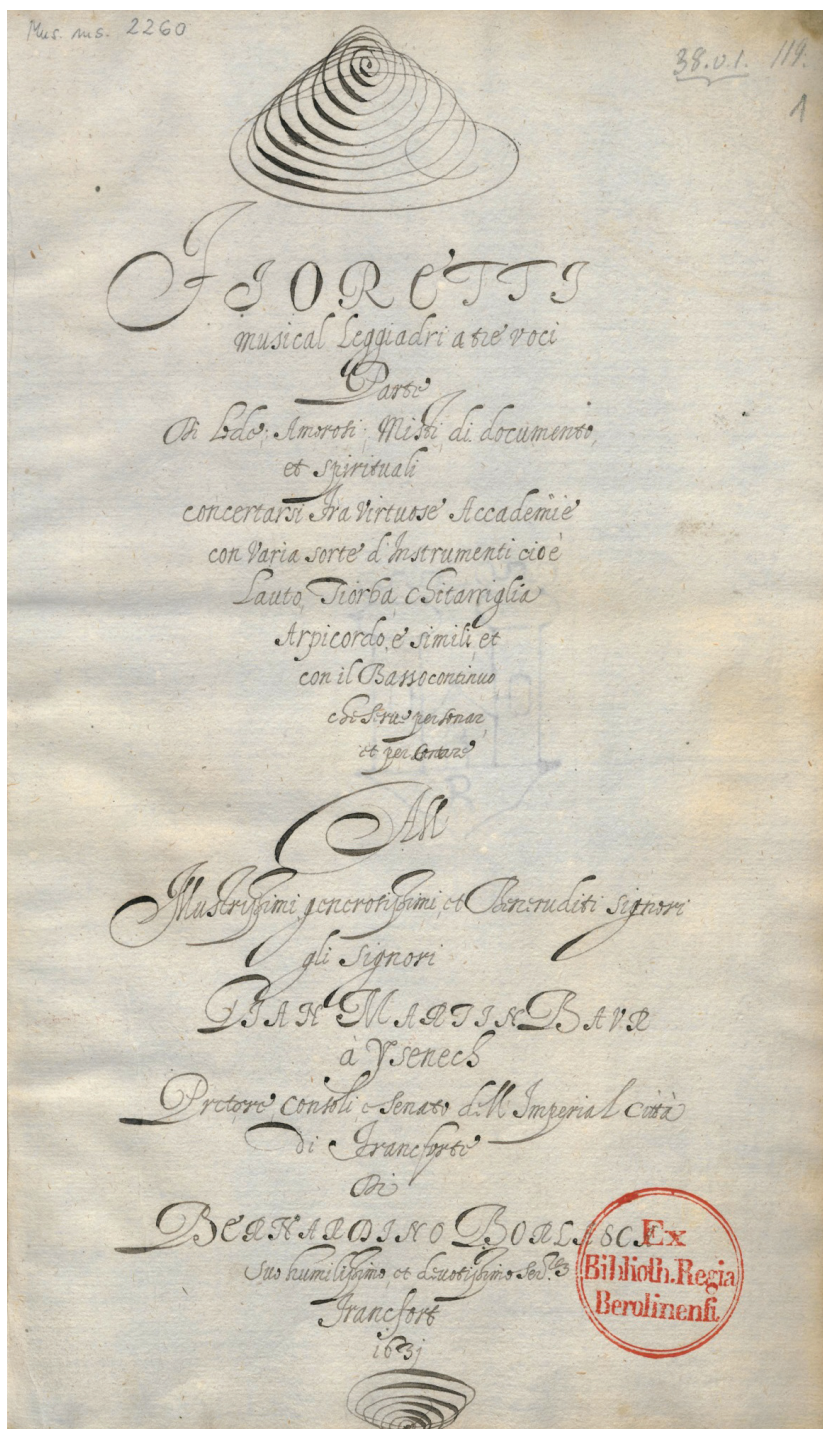 Mus. ms. 2260
38.v.1. 119.
1
FIORETTI
musical Leggiadri a tre voci
Parte
Di Lode, Amorosi, Misti, di documento,
et spirituali
concertarsi fra virtuose Accademie
con varia sorte d'Instrumenti cioè
Lauto, Tiorba, Chitarriglia
Arpicordo, e simili, et
con il Bassocontinuo
che serve per sonar,
et per cantare
All
Illustrissimi, generosissimi, et Beneruditi signori
gli signori
GIAN MARTIN BAVR
à Ysenech
Pretore, Consoli, e Senato dell Imperial Città
di Francforte
Di
BERNARDINO BORLASCA
suo humilissimo, et devotissimo
Francfort
1631
Ex
Biblioth. Regia
Berolinensi.